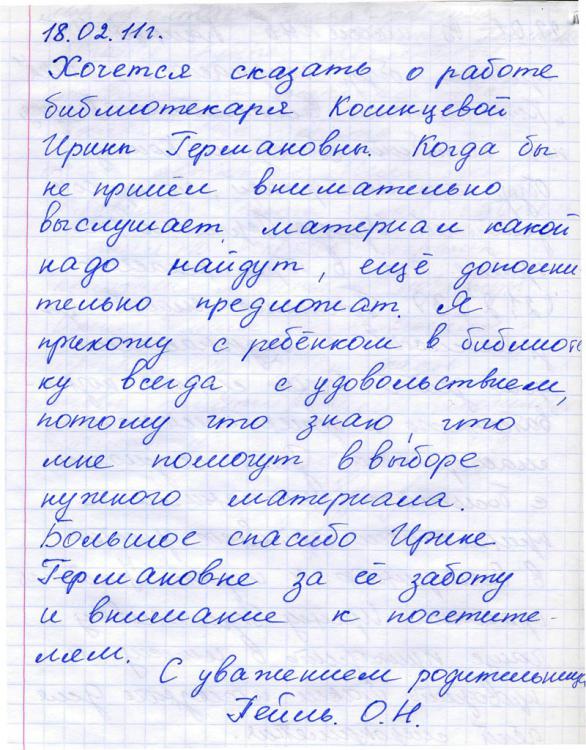 18.02.11г.
Хочется сказать о работе
библиотекаря Косинцевой
Ирины Германовны. Когда бы
не пришёл внимательно
выслушает, материал какой
надо найдут, ещё дополни
тельно предложат. Я
прихожу с ребёнком в библиоте
ку всегда с удовольствием,
потому что знаю, что
мне помогут в выборе
нужного материала.
Большое спасибо Ирине
Германовне за её заботу
и внимание к посетите-
лям.
С уважением родительница
Гейль. О.Н.